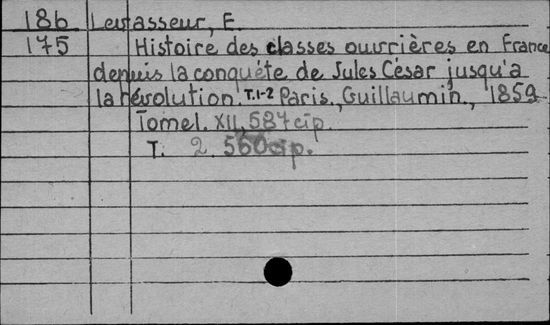 186 Levasseur, E.
175 Histoire des classes ouvrières en France
depuis la conquéte de Jules César jusqu'a
la révolution. T.1-2 Paris., Guillaumin., 1859
Tome I. XII, 587 cip.
T. 2. 560 cip.